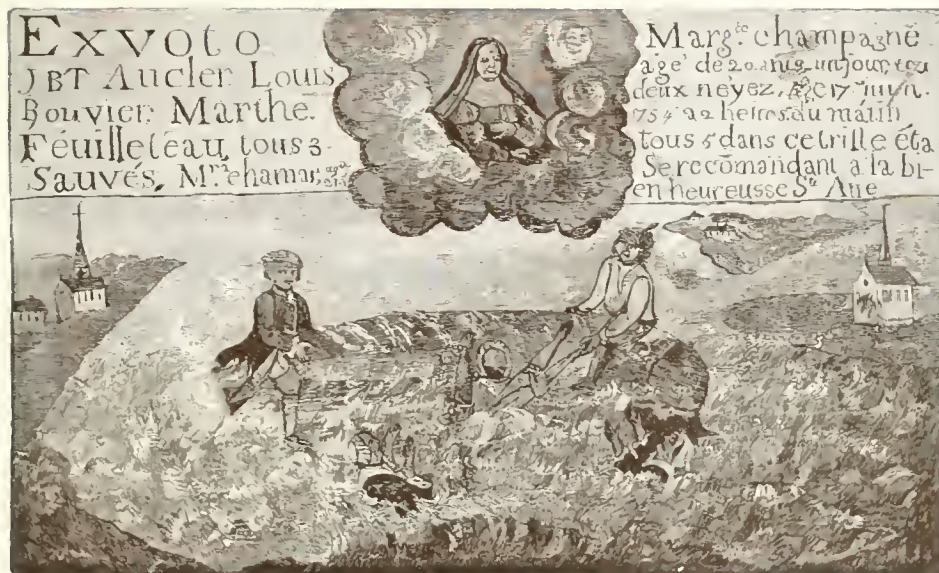 EXVOTO
JBT Aucler Louis
Bouvier Marthe.
Feuilleteau, tous 3
Sauvés, Mrs chamar,
Margte champagnē
age de 20 anis, un jour,
deux neyez, 17 juyn.
754 a 2 heires du matin
tous 5 dans ce trille éta
Se recōmandant a la bi-
en heureusse Ste Ane